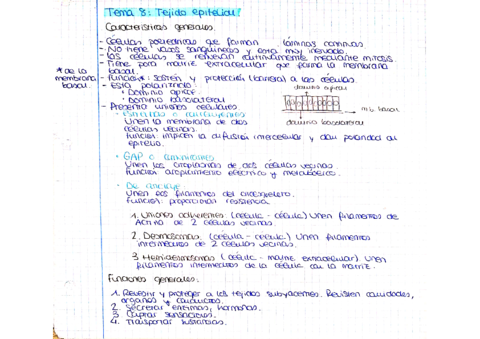 Tema 8: Tejido epitelial!
Características generales.
- Células poliédricas que forman láminas continuas
- No tiene vasos sanguíneos y está muy inervado.
- Las células se renuevan continuamente mediante mitosis.
- Tiene poca matriz extracelular que forma la membrana basal.
* de la membrana basal.
- Funciones: Sostén y protección (barrera) a las células.
- Está polarizado:
• Dominio apical
• Dominio basolateral
dominio apical
mb basal
dominio basolateral
- Presenta uniones celulares
Unen la membrana de dos células vecinas.
Función impiden la difusión intercelular y dan polaridad al epitelio.
• GAP o comunicantes
Unen los citoplasmas de dos células vecinas.
Función acoplamiento eléctrico y metabólico.
• De anclaje
Unen los filamentos del citoesqueleto.
Función: proporcionan resistencia.
1. Uniones adherentes (célula - célula) Unen filamentos de Actina de 2 células vecinas.
2. Desmosomas (célula - célula) Unen filamentos intermedios de 2 células vecinas.
3. Hemidesmosomas (célula - matriz extracelular). Unen filamentos intermedios de la célula con la matriz.
Funciones generales:
1. Revestir y proteger a los tejidos subyacentes. Revisten cavidades, órganos y conductos.
2. Secretar enzimas, hormonas.
3. Captar sustancias
4. Transportar sustancias.